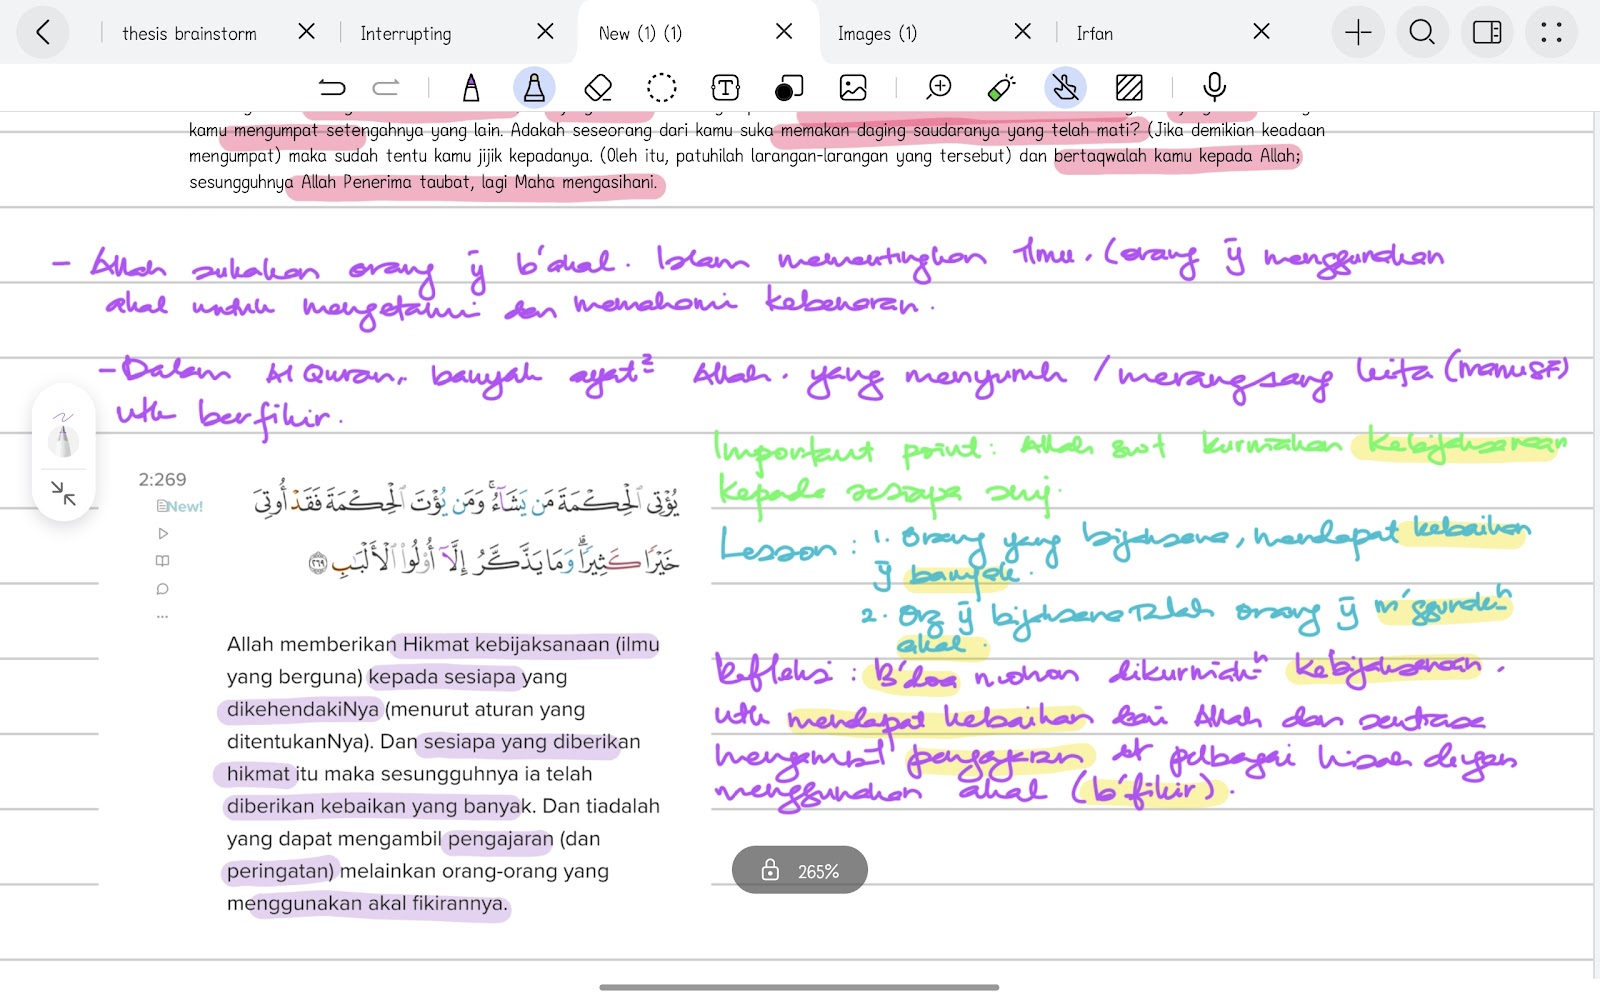 thesis brainstorm
Interrupting
New (1) (1)
Images (1)
Irfan
kamu mengumpat setengahnya yang lain. Adakah seseorang dari kamu suka memakan daging saudaranya yang telah mati? (Jika demikian keadaan
mengumpat) maka sudah tentu kamu jijik kepadanya. (Oleh itu, patuhilah larangan-larangan yang tersebut) dan bertaqwalah kamu kepada Allah;
sesungguhnya Allah Penerima taubat, lagi Maha mengasihani.
- Allah sukakan orang ȳ b'akal. Islam mementingkan Ilmu. (orang ȳ menggunakan
akal untuk mengetahui dan memahami kebenaran.
- Dalam Al Quran, banyak ayat² Allah. yang menyuruh / merangsang kita (manusia)
utk berfikir.
2:269
New!
يُؤْتِى ٱلْحِكْمَةَ مَن يَشَآءُ ۚ وَمَن يُؤْتَ ٱلْحِكْمَةَ فَقَدْ أُوتِىَ
خَيْرًا كَثِيرًا ۗ وَمَا يَذَّكَّرُ إِلَّآ أُو۟لُوا۟ ٱلْأَلْبَـٰبِ ٢٦٩
Allah memberikan Hikmat kebijaksanaan (ilmu
yang berguna) kepada sesiapa yang
dikehendakiNya (menurut aturan yang
ditentukanNya). Dan sesiapa yang diberikan
hikmat itu maka sesungguhnya ia telah
diberikan kebaikan yang banyak. Dan tiadalah
yang dapat mengambil pengajaran (dan
peringatan) melainkan orang-orang yang
menggunakan akal fikirannya.
Important point: Allah swt kurniakan kebijaksanaan
kepada sesiapa
Lesson : 1. Orang yang bijaksana, mendapat kebaikan
ȳ banyak.
2. Org ȳ bijaksana ialah orang ȳ m'ggunakⁿ
akal.
Refleksi : B'doa mohon dikurniakⁿ kebijaksanaan.
utk mendapat kebaikan dari Allah dan sentiasa
mengambil pengajaran dr pelbagai kisah dengan
menggunakan akal (b'fikir).
265%